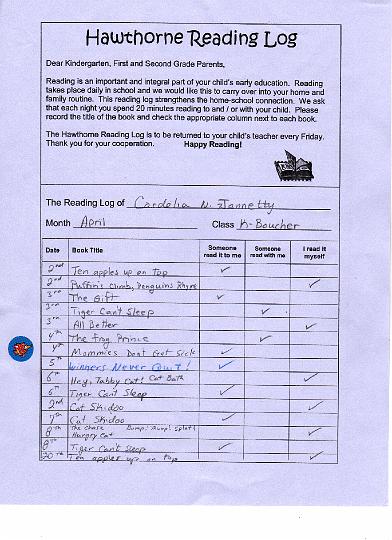 Hawthorne Reading Log
Dear Kindergarten, First and Second Grade Parents,
Reading is an important and integral part of your child's early education. Reading
takes place daily in school and we would like this to carry over into your home and
family routine. This reading log strengthens the home-school connection. We ask
that each night you spend 20 minutes reading to and / or with your child. Please
record the title of the book and check the appropriate column next to each book.
The Hawthorne Reading Log is to be returned to your child's teacher every Friday.
Thank you for your cooperation. Happy Reading!
The Reading Log of Cordelia N. Jannetty
Month April Class K-Boucher
Date Book Title Someone read it to me Someone read with me I read it myself
2nd Ten apples up on top ✓
2nd Puffin's climb, Penguins Rhyme ✓
3rd The Gift ✓
3rd Tiger Can't Sleep ✓
3rd All Better ✓
4th The Frog Prince ✓
4th Mommies Dont Get Sick ✓
5th Winners Never Quit! ✓
6th Hey, Tabby Cat! Cat Bath ✓
6th Tiger Cant Sleep ✓
2nd Cat Skidoo ✓
7th Cat Skidoo ✓
8th The Chase Bump! Bump! Splat!
Hungry Cat ✓
8th Tiger Can't Sleep ✓
20th Ten apples up on top ✓